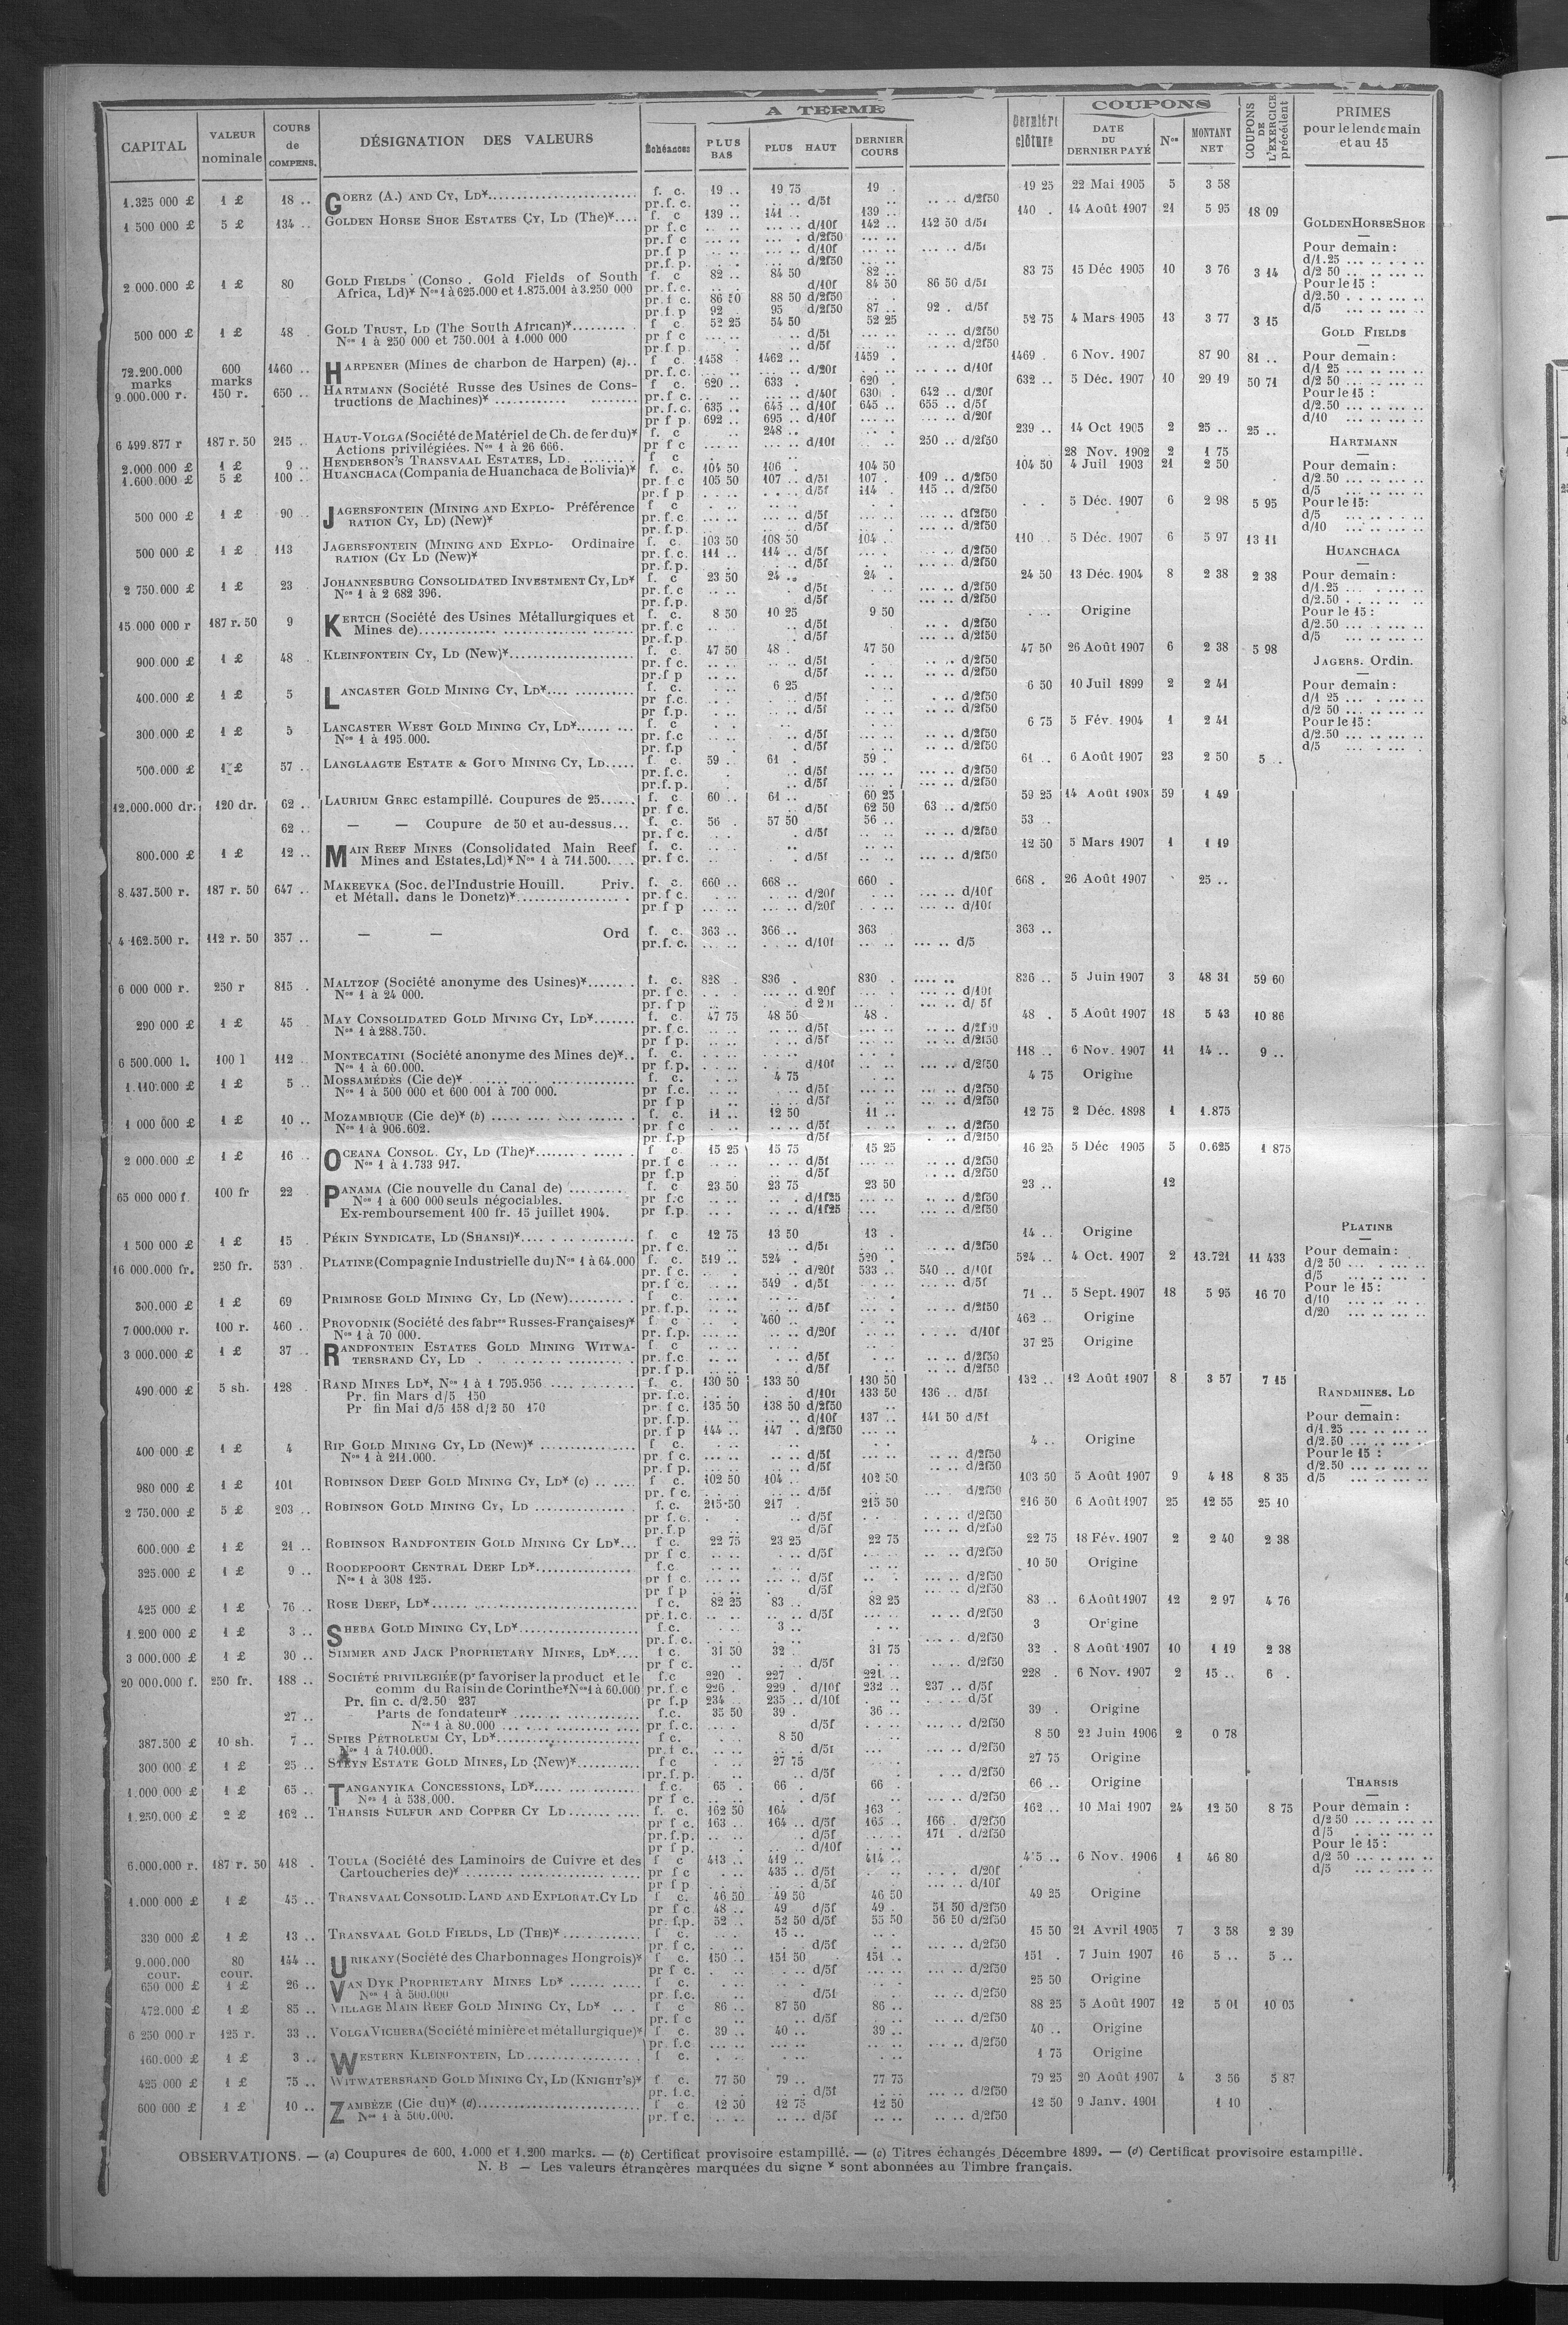 A TERME
COUPONS
CAPITAL | VALEUR nominale | COURS de COMPENS. | DÉSIGNATION DES VALEURS | Échéances | PLUS BAS | PLUS HAUT | DERNIER COURS | Dernière clôture | DATE DU DERNIER PAYÉ | Nos | MONTANT NET | COUPONS DE L'EXERCICE précédent | PRIMES pour le lendemain et au 15
1.325 000 £ | 1 £ | 18 .. | GOERZ (A.) AND CY, LD* | f. c. | 19 .. | 19 75 | 19 . | 19 25 | 22 Mai 1905 | 5 | 3 58
pr. f. c. | .. d/5f | .. .. d/2f50
1 500 000 £ | 5 £ | 134 .. | GOLDEN HORSE SHOE ESTATES CY, LD (The)* | f. c | 139 .. | 141 .. | 139 .. | 140 . | 14 Août 1907 | 21 | 5 95 | 18 09
pr f.c | d/10f | 142 .. | 142 50 d/5f
pr f c | d/2f50
pr f p | d/10f | d/5f
pr.f. p. | d/2f50
2.000.000 £ | 1 £ | 80 | GOLD FIELDS (Conso . Gold Fields of South | f. c | 82 .. | 84 50 | 82 .. | 83 75 | 15 Déc 1905 | 10 | 3 76 | 3 14
Africa, Ld)* Nos 1 à 625.000 et 1.875.001 à 3.250 000 | pr. f. c. | d/10f | 84 50 | 86 50 d/5f
pr. f c. | 86 50 | 88 50 d/2f50
pr.f.p | 92 | 95 d/2f50 | 87 .. | 92 . d/5f
500 000 £ | 1 £ | 48 . | GOLD TRUST, LD (The South African)* | f c | 52 25 | 54 50 | 52 25 | 52 75 | 4 Mars 1905 | 13 | 3 77 | 3 15
Nos 1 à 250 000 et 750.001 à 1.000 000 | pr f c | d/5f | d/2f50
pr. f p. | d/5f | d/2f50
72.200.000 marks | 600 marks | 1460 .. | HARPENER (Mines de charbon de Harpen) (a) | f c. | 1458 | 1462 .. | 1459 . | 1469 . | 6 Nov. 1907 | 87 90 | 81 ..
pr. f. c. | d/20f | d/10f
9.000.000 r. | 150 r. | 650 .. | HARTMANN (Société Russe des Usines de Cons- | f. c. | 620 .. | 633 . | 620 . | 632 .. | 5 Déc. 1907 | 10 | 29 19 | 50 71
tructions de Machines)* | pr. f c. | d/40f | 630 . | 642 .. d/20f
pr. f. c. | 635 .. | 645 .. d/10f | 645 .. | 655 .. d/5f
pr f p. | 692 .. | 695 .. d/10f | d/20f
6 499.877 r | 187 r. 50 | 215 .. | HAUT-VOLGA (Société de Matériel de Ch. de fer du)* | f. c | 248 .. | 239 .. | 14 Oct 1905 | 2 | 25 .. | 25 ..
Actions privilégiées. Nos 1 à 26 666. | pr f c | d/10f | 250 .. d/2f50
2.000.000 £ | 1 £ | 9 .. | HENDERSON'S TRANSVAAL ESTATES, LD | f c | 28 Nov. 1902 | 2 | 1 75
1.600.000 £ | 5 £ | 100 .. | HUANCHACA (Compania de Huanchaca de Bolivia)* | f. c. | 104 50 | 106 . | 104 50 | 104 50 | 4 Juil 1903 | 21 | 2 50
pr. f c | 105 50 | 107 .. d/5f | 107 . | 109 .. d/2f50
pr. f p | d/5f | 114 . | 115 .. d/2f50
500 000 £ | 1 £ | 90 .. | JAGERSFONTEIN (MINING AND EXPLO- Préférence | f c | 5 Déc. 1907 | 6 | 2 98 | 5 95
RATION CY, LD) (New)* | pr. f. c | d/5f | d/2f50
pr. f.p. | d/5f | d/2f50
500 000 £ | 1 £ | 113 | JAGERSFONTEIN (MINING AND EXPLO- Ordinaire | f. c. | 103 50 | 108 50 | 104 .. | 110 .. | 5 Déc. 1907 | 6 | 5 97 | 13 11
RATION (CY LD (New)* | pr. f. c. | 111 .. | 114 .. d/5f | d/2f50
pr. f.p. | d/5f | d/2f50
2 750.000 £ | 1 £ | 23 . | JOHANNESBURG CONSOLIDATED INVESTMENT CY, LD* | f. c | 23 50 | 24 .. | 24 . | 24 50 | 13 Déc. 1904 | 8 | 2 38 | 2 38
Nos 1 à 2 682 396. | pr. f.c | d/5f | d/2f50
pr. f.p. | d/5f | d/2f50
15.000 000 r | 187 r. 50 | 9 | KERTCH (Société des Usines Métallurgiques et | f. c. | 8 50 | 10 25 | 9 50 | Origine
Mines de) | pr. f.c | d/5f | d/2f50
pr. f.p. | d/5f | d/2f50
900.000 £ | 1 £ | 48 . | KLEINFONTEIN CY, LD (New)* | f. c. | 47 50 | 48 . | 47 50 | 47 50 | 26 Août 1907 | 6 | 2 38 | 5 98
pr. f c. | d/5f | d/2f50
pr. f p | d/5f | d/2f50
400.000 £ | 1 £ | 5 | LANCASTER GOLD MINING CY, LD* | f. c. | 6 25 | 6 50 | 10 Juil 1899 | 2 | 2 41
pr f.c. | d/5f | d/2f50
pr f.p. | d/5f | d/2f50
300.000 £ | 1 £ | 5 | LANCASTER WEST GOLD MINING CY, LD* | f. c | 6 75 | 5 Fév. 1904 | 1 | 2 41
Nos 1 à 195.000. | pr. f.c | d/5f | d/2f50
pr. f.p | d/5f | d/2f50
500.000 £ | 1 £ | 57 .. | LANGLAAGTE ESTATE & GOLD MINING CY, LD | f. c | 59 .. | 61 . | 59 . | 61 .. | 6 Août 1907 | 23 | 2 50 | 5 ..
pr. f. c. | d/5f | d/2f50
pr. f. p. | d/5f | d/2f50
12.000.000 dr. | 120 dr. | 62 .. | LAURIUM GREC estampillé. Coupures de 25 | f. c. | 60 .. | 61 .. | 60 25 | 59 25 | 14 Août 1903 | 59 | 1 49
pr. f c. | d/5f | 62 50 | 63 .. d/2f50
62 .. | — — Coupure de 50 et au-dessus | f. c. | 56 . | 57 50 | 56 .. | 53 ..
pr. f c. | d/5f | d/2f50
800.000 £ | 1 £ | 12 .. | MAIN REEF MINES (Consolidated Main Reef | f. c. | 12 50 | 5 Mars 1907 | 1 | 1 19
Mines and Estates, Ld)* Nos 1 à 711.500. | pr. f c. | d/5f | d/2f50
8.437.500 r. | 187 r. 50 | 647 .. | MAKEEVKA (Soc. de l'Industrie Houill. Priv. | f. c. | 660 .. | 668 .. | 660 . | 668 . | 26 Août 1907 | 25 ..
et Métall. dans le Donetz)* | pr. f c. | d/20f | d/10f
pr f p | d/20f | d/10f
4 162.500 r. | 112 r. 50 | 357 .. | — — Ord | f. c. | 363 .. | 366 .. | 363 | 363 ..
pr. f. c. | d/10f | d/5
6 000 000 r. | 250 r | 815 . | MALTZOF (Société anonyme des Usines)* | f. c. | 828 . | 836 . | 830 . | 836 .. | 5 Juin 1907 | 3 | 48 31 | 59 60
Nos 1 à 24 000. | pr. f c. | d 20f | d/10f
pr. f p | d/ 5f
290 000 £ | 1 £ | 45 | MAY CONSOLIDATED GOLD MINING CY, LD* | f. c. | 47 75 | 48 50 | 48 . | 48 . | 5 Août 1907 | 18 | 5 43 | 10 86
Nos 1 à 288.750. | pr. f c. | d/5f | d/2f50
pr f p. | d/5f | d/2f50
6 500.000 l. | 100 l | 112 .. | MONTECATINI (Société anonyme des Mines de)* | f. c. | 118 .. | 6 Nov. 1907 | 11 | 14 .. | 9 ..
Nos 1 à 60.000. | pr f.p. | d/10f | d/2f50
1.110.000 £ | 1 £ | 5 .. | MOSSAMÉDÈS (Cie de)* | f. c. | 4 75 | 4 75 | Origine
Nos 1 à 500 000 et 600 001 à 700 000. | pr f.c. | d/5f | d/2f50
pr f p | d/5f | d/2f50
1 000 000 £ | 1 £ | 10 .. | MOZAMBIQUE (Cie de)* (b) | f. c. | 11 .. | 12 50 | 11 .. | 12 75 | 2 Déc. 1898 | 1 | 1.875
Nos 1 à 906.602. | pr f c | d/5f | d/2f50
pr. f.p | d/5f | d/2f50
2 000.000 £ | 1 £ | 16 .. | OCEANA CONSOL. CY, LD (The)* | f c. | 15 25 | 15 75 | 15 25 | 16 25 | 5 Déc 1905 | 5 | 0.625 | 1 875
Nos 1 à 1.733 917. | pr. f c | d/5f | d/2f50
pr f.p | d/5f | d/2f50
65 000 000 f. | 100 fr | 22 | PANAMA (Cie nouvelle du Canal de) | f. c | 23 50 | 23 75 | 23 50 | 23 .. | 12
Nos 1 à 600 000 seuls négociables. | pr f.c | d/1f25 | d/2f50
Ex-remboursement 100 fr. 15 juillet 1904. | pr f.p. | d/1f25 | d/2f50
1 500 000 £ | 1 £ | 15 . | PÉKIN SYNDICATE, LD (SHANSI)* | f c | 12 75 | 13 50 | 13 . | 14 .. | Origine
pr. f c. | d/5f | d/2f50
16 000.000 fr. | 250 fr. | 530 | PLATINE (Compagnie Industrielle du) Nos 1 à 64.000 | f. c. | 519 .. | 524 . | 520 . | 524 .. | 4 Oct. 1907 | 2 | 13.721 | 11 433
pr. f c. | d/20f | 533 .. | 540 .. d/10f
pr. f c. | 549 . d/5f | d/5f
300.000 £ | 1 £ | 69 | PRIMROSE GOLD MINING CY, LD (New) | f c. | 71 .. | 5 Sept. 1907 | 18 | 5 95 | 16 70
pr. f.p. | d/5f | d/2f50
7 000.000 r. | 100 r. | 460 .. | PROVODNIK (Société des fabres Russes-Françaises)* | f c | 460 .. | 462 .. | Origine
Nos 1 à 70 000. | pr. f.p. | d/20f | d/10f
3 000.000 £ | 1 £ | 37 .. | RANDFONTEIN ESTATES GOLD MINING WITWA- | f c | 37 25 | Origine
TERSRAND CY, LD | pr. f.c. | d/5f | d/2f50
pr. f p. | d/5f | d/2f50
490 000 £ | 5 sh. | 128 . | RAND MINES LD*, Nos 1 à 1 795.956 | f. c. | 130 50 | 133 50 | 130 50 | 132 .. | 12 Août 1907 | 8 | 3 57 | 7 15
Pr. fin Mars d/5 150 | pr. f.c. | d/10f | 133 50 | 136 .. d/5f
Pr fin Mai d/5 158 d/2 50 170 | pr f c. | 135 50 | 138 50 d/2f50
pr. f.p. | d/10f | 137 .. | 141 50 d/5f
pr f p | 144 .. | 147 . d/2f50
400 000 £ | 1 £ | 4 | RIP GOLD MINING CY, LD (New)* | f c. | 4 .. | Origine
Nos 1 à 211.000. | pr. f c. | d/5f | d/2f50
pr. f p. | d/5f | d/2f50
980 000 £ | 1 £ | 101 | ROBINSON DEEP GOLD MINING CY, LD* (c) | f c. | 102 50 | 104 .. | 102 50 | 103 50 | 5 Août 1907 | 9 | 4 18 | 8 35
pr. f c. | d/5f | d/2f50
2 750.000 £ | 5 £ | 203 .. | ROBINSON GOLD MINING CY, LD | f. c. | 215 50 | 217 . | 215 50 | 216 50 | 6 Août 1907 | 25 | 12 55 | 25 10
pr f.c. | d/5f | d/2f50
pr. f.p | d/5f | d/2f50
600.000 £ | 1 £ | 21 .. | ROBINSON RANDFONTEIN GOLD MINING CY LD* | f c. | 22 75 | 23 25 | 22 75 | 22 75 | 18 Fév. 1907 | 2 | 2 40 | 2 38
pr f c. | d/5f | d/2f50
325.000 £ | 1 £ | 9 .. | ROODEPOORT CENTRAL DEEP LD* | f.c | 10 50 | Origine
Nos 1 à 308 125. | pr f c. | d/5f | d/2f50
pr f p | d/5f | d/2f50
425 000 £ | 1 £ | 76 .. | ROSE DEEP, LD* | f c. | 82 25 | 83 .. | 82 25 | 83 .. | 6 Août 1907 | 12 | 2 97 | 4 76
pr. f. c. | d/5f | d/2f50
1.200 000 £ | 1 £ | 3 .. | SHEBA GOLD MINING CY, LD* | f.c. | 3 .. | 3 | Origine
pr. f. c. | d/2f50
3 000.000 £ | 1 £ | 30 .. | SIMMER AND JACK PROPRIETARY MINES, LD* | f c. | 31 50 | 32 . | 31 75 | 32 . | 8 Août 1907 | 10 | 1 19 | 2 38
pr f c. | d/5f | d/2f50
20 000.000 f. | 250 fr. | 188 .. | SOCIÉTÉ PRIVILEGIÉE (pr favoriser la product et le | f.c | 220 . | 227 . | 221 .. | 228 . | 6 Nov. 1907 | 2 | 15 .. | 6 .
comm du Raisin de Corinthe* Nos 1 à 60.000 | pr. f. c | 226 . | 229 . d/10f | 232 .. | 237 .. d/5f
Pr. fin c. d/2.50 237 | pr f.p | 234 | 235 .. d/10f | d/5f
27 .. | Parts de fondateur* | f.c. | 35 50 | 39 . | 36 .. | 39 . | Origine
Nos 1 à 80.000 | pr f.c. | d/5f | d/2f50
387.500 £ | 10 sh. | 7 .. | SPIES PETROLEUM CY, LD* | f c. | 8 50 | 8 50 | 22 Juin 1906 | 2 | 0 78
Nos 1 à 710.000. | pr. f c. | d/5f | d/2f50
300 000 £ | 1 £ | 25 .. | STEYN ESTATE GOLD MINES, LD (New)* | f c | 27 75 | 27 75 | Origine
pr. f.p. | d/5f | d/2f50
1.000.000 £ | 1 £ | 65 .. | TANGANYIKA CONCESSIONS, LD* | f.c. | 65 . | 66 . | 66 . | 66 .. | Origine
Nos 1 à 538.000. | pr f c. | d/5f | d/2f50
1.250.000 £ | 2 £ | 162 .. | THARSIS SULFUR AND COPPER CY LD | f. c. | 162 50 | 164 | 163 . | 162 .. | 10 Mai 1907 | 24 | 12 50 | 8 75
pr f c. | 163 .. | 164 .. d/5f | 165 .. | 166 . d/2f50
pr. f.p. | d/5f | 171 . d/2f50
pr f p. | d/10f
6.000.000 r. | 187 r. 50 | 418 . | TOULA (Société des Laminoirs de Cuivre et des | f c | 413 .. | 419 .. | 414 .. | 6 Nov. 1906 | 1 | 46 80
Cartoucheries de)* | pr f c | 435 .. d/5f | d/20f
pr f p | d/5f | d/10f
1.000 000 £ | 1 £ | 45 .. | TRANSVAAL CONSOLID. LAND AND EXPLORAT. CY LD | f c. | 46 50 | 49 50 | 46 50 | 49 25 | Origine
pr f c. | 48 .. | 49 d/5f | 49 . | 51 50 d/2f50
pr. f.p. | 52 .. | 52 50 d/5f | 55 50 | 56 50 d/2f50
330 000 £ | 1 £ | 13 .. | TRANSVAAL GOLD FIELDS, LD (THE)* | f c. | 15 .. | 15 50 | 21 Avril 1905 | 7 | 3 58 | 2 39
pr. f c. | d/5f | d/2f50
9.000.000 cour. | 80 cour. | 144 .. | URIKANY (Société des Charbonnages Hongrois)* | f c. | 150 .. | 151 50 | 151 .. | 151 . | 7 Juin 1907 | 16 | 5 .. | 5 ..
pr f c. | d/5f | d/2f50
650 000 £ | 1 £ | 26 .. | VAN DYK PROPRIETARY MINES LD* | f c. | 25 50 | Origine
Nos 1 à 500.000 | pr f.c. | d/5f | d/2f50
472.000 £ | 1 £ | 85 .. | VILLAGE MAIN REEF GOLD MINING CY, LD* | f c | 86 .. | 87 50 | 86 .. | 88 25 | 5 Août 1907 | 12 | 5 01 | 10 05
pr. f c | d/5f | d/2f50
6 250 000 r | 125 r. | 33 .. | VOLGA VICHERA (Société minière et métallurgique)* | f c. | 39 .. | 40 .. | 39 .. | 40 .. | Origine
pr. f.c | d/2f50
160.000 £ | 1 £ | 3 .. | WESTERN KLEINFONTEIN, LD | f c. | 1 75 | Origine
425 000 £ | 1 £ | 75 .. | WITWATERSRAND GOLD MINING CY, LD (KNIGHT'S)* | f c. | 77 50 | 79 .. | 77 75 | 79 25 | 20 Août 1907 | 4 | 3 56 | 5 87
pr. f.c. | d/5f | d/2f50
600 000 £ | 1 £ | 10 .. | ZAMBÈZE (Cie du)* (d) | f c. | 12 50 | 12 75 | 12 50 | 12 50 | 9 Janv. 1901 | 1 10
Nos 1 à 500.000. | pr. f c. | d/5f | d/2f50
GOLDEN HORSE SHOE
Pour demain :
d/1.25
d/2 50
Pour le 15 :
d/2.50
d/5
GOLD FIELDS
Pour demain :
d/1 25
d/2 50
Pour le 15 :
d/2.50
d/10
HARTMANN
Pour demain :
d/2.50
d/5
Pour le 15 :
d/5
d/10
HUANCHACA
Pour demain :
d/1.25
d/2.50
Pour le 15 :
d/2.50
d/5
JAGERS. Ordin.
Pour demain :
d/1 25
d/2 50
Pour le 15 :
d/2.50
d/5
PLATINE
Pour demain :
d/2 50
d/5
Pour le 15 :
d/10
d/20
RANDMINES, LD
Pour demain :
d/1.25
d/2.50
Pour le 15 :
d/2.50
d/5
THARSIS
Pour demain :
d/2 50
d/5
Pour le 15 :
d/2 50
d/5
OBSERVATIONS. — (a) Coupures de 600, 1.000 et 1.200 marks. — (b) Certificat provisoire estampillé. — (c) Titres échangés Décembre 1899. — (d) Certificat provisoire estampillé.
N. B — Les valeurs étrangères marquées du signe * sont abonnées au Timbre français.